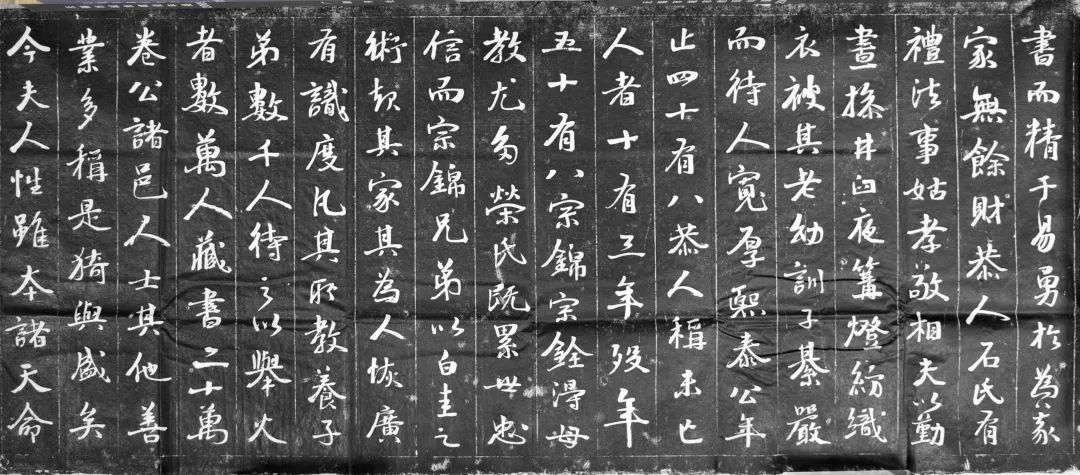 書而精于易勇於為義
家無餘財恭人石氏有
禮法事姑孝敬相夫以勤
晝操井臼夜篝燈紡織
衣被其老幼訓子綦嚴
而待人寬厚熙泰公年
止四十有八恭人稱未亡
人者十有三年歿年
五十有八宗錦宗銓得母
教尤多榮氏既累世忠
信而宗錦兄弟以白圭之
術起其家其為人恢廣
有識度凡其所教養子
弟數千人待之以舉火
者數萬人藏書二十萬
卷公諸邑人士其他善
業多稱是猗與盛矣
今夫人性雖本諸天命